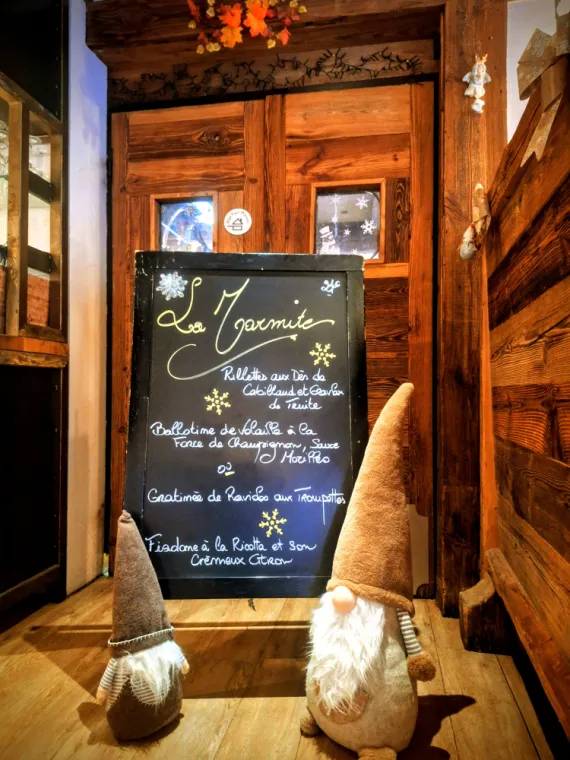 La Marmite
Rillettes aux Dés de
Cabillaud et Gravlax
de Truite
Ballotine de Volaille à la
Farce de Champignon, Sauce
Morilles
ou
Gratinée de Ravioles aux Trompettes
Fiadone à la Ricotta et son
Crémeux Citron